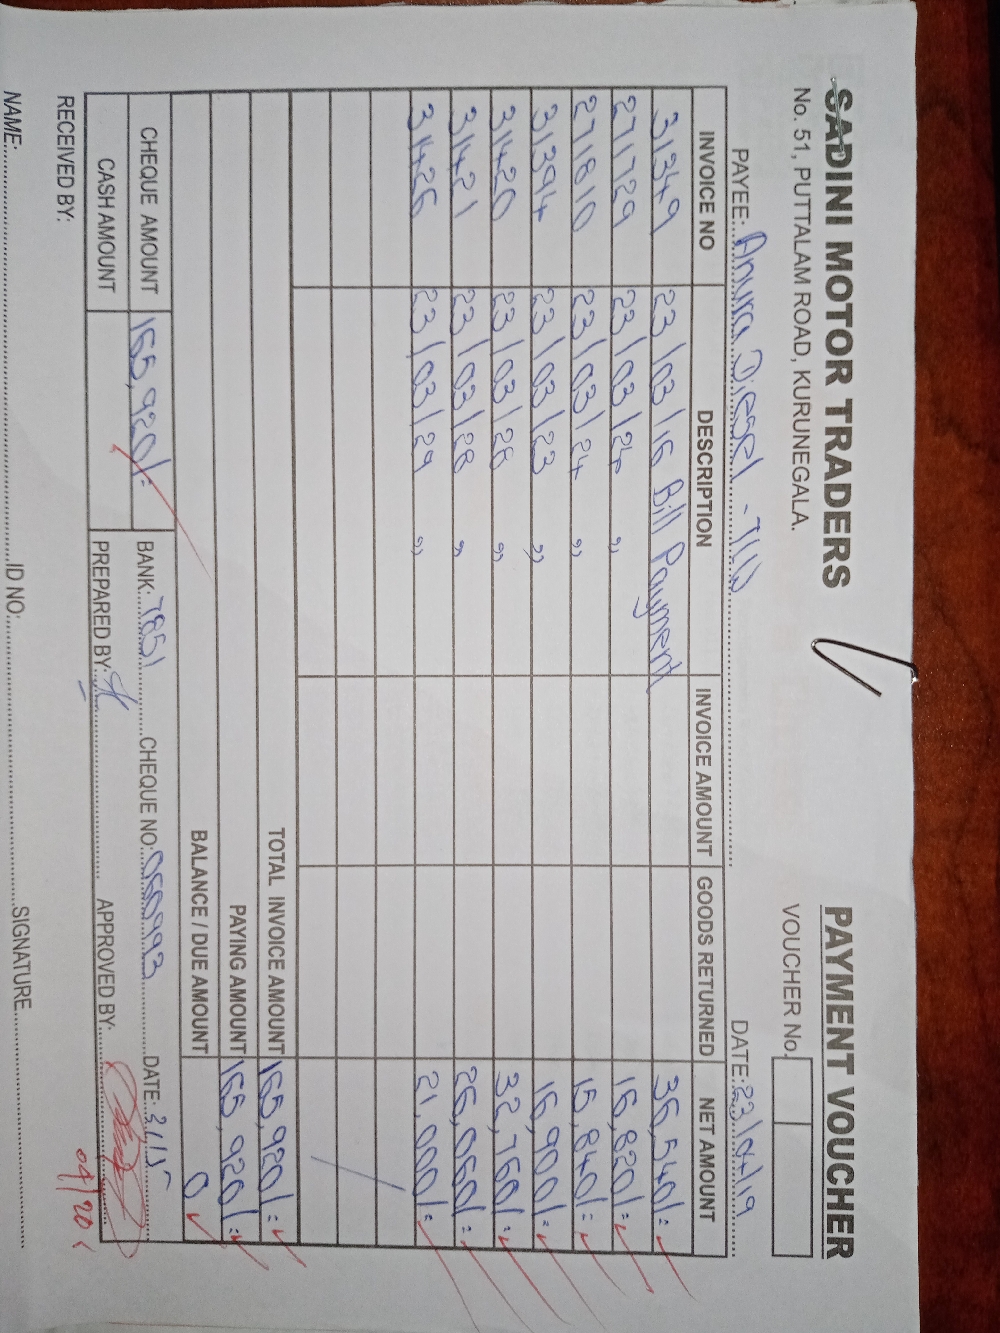 SADINI MOTOR TRADERS PAYMENT VOUCHER
No. 51, PUTTALAM ROAD, KURUNEGALA. VOUCHER No.
PAYEE: Anura Diesel - DATE: 23/04/19
INVOICE NO DESCRIPTION INVOICE AMOUNT GOODS RETURNED NET AMOUNT
31349 23/03/16 Bill Payment 36,540/=
271729 23/03/24 " 16,820/=
271810 23/03/24 " 15,840/=
31394 23/03/23 " 16,900/=
31420 23/03/28 " 32,760/=
31421 23/03/28 " 26,060/=
31426 23/03/29 " 21,000/=
TOTAL INVOICE AMOUNT 165,920/=
PAYING AMOUNT 165,920/=
BALANCE / DUE AMOUNT 0
CHEQUE AMOUNT 165,920/= BANK: 7851 CHEQUE NO: 060993 DATE:
CASH AMOUNT PREPARED BY: APPROVED BY:
04/20
RECEIVED BY:
NAME: ID NO: SIGNATURE